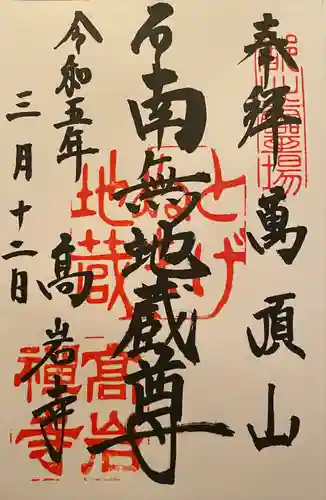 奉拝 萬頂山
南無地蔵尊
高岩寺
令和五年
三月十二日
とげぬき
地蔵
高岩
禅寺